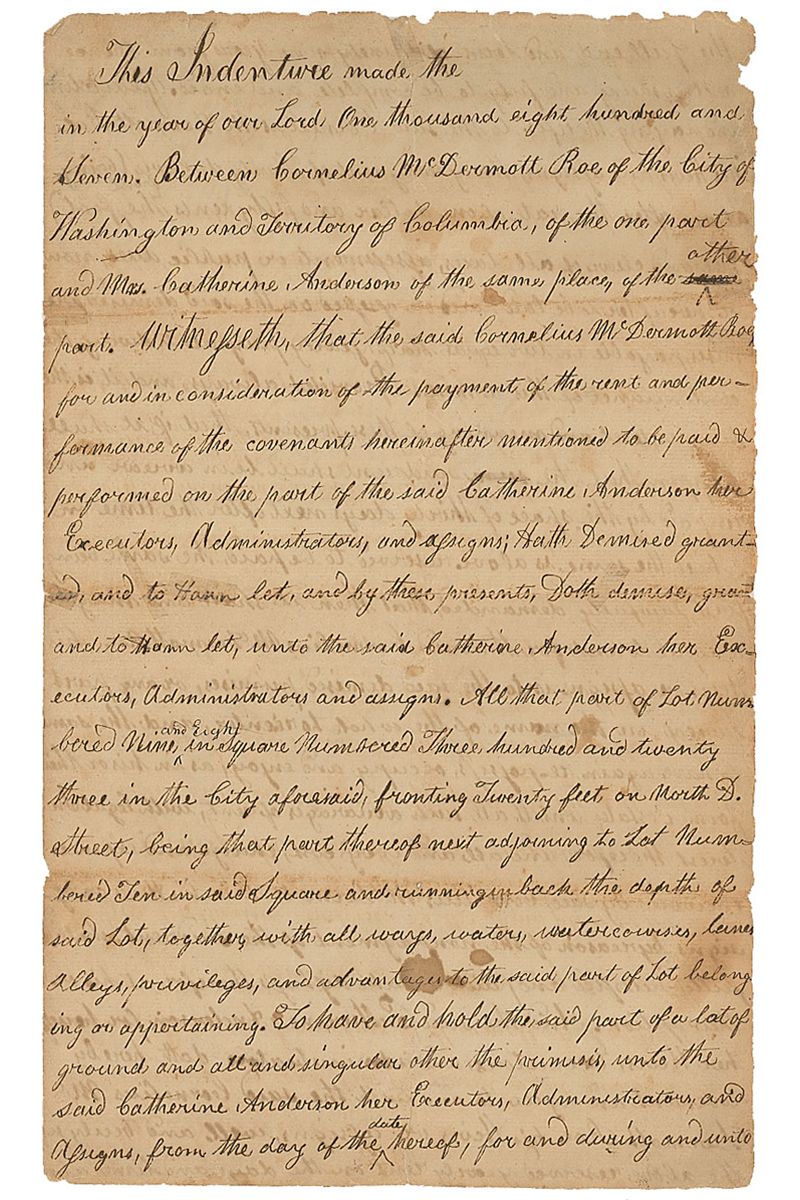 This Indenture made the
in the year of our Lord One thousand eight hundred and
Seven. Between Cornelius McDermott Roe of the City of
Washington and Territory of Columbia, of the one part
and Mrs. Catherine Anderson of the same place, of the same other
part. Witnesseth, that the said Cornelius McDermott Roe,
for and in consideration of the payment of the rent and per-
formance of the covenants hereinafter mentioned to be paid &
performed on the part of the said Catherine Anderson her
Executors, Administrators, and assigns; Hath Demised grant-
ed, and to Harm let, and by these presents, Doth demise, grant
and to Harm let, unto the said Catherine Anderson her Ex-
ecutors, Administrators and assigns. All that part of Lot Num-
bered Nine, and Eight in Square Numbered Three hundred and twenty
three in the City aforesaid, fronting Twenty feet on North D.
Street, being that part thereof next adjoining to Lot Num-
bered Ten in said Square and running back the depth of
said Lot, together, with all ways, waters, watercourses, lanes
Alleys, privileges, and advantages to the said part of Lot belong
ing or appertaining. To have and hold the said part of a lot of
ground and all and singular other the primisis, unto the
said Catherine Anderson her Executors, Administrators, and
Assigns, from the day of the date hereof, for and during and unto